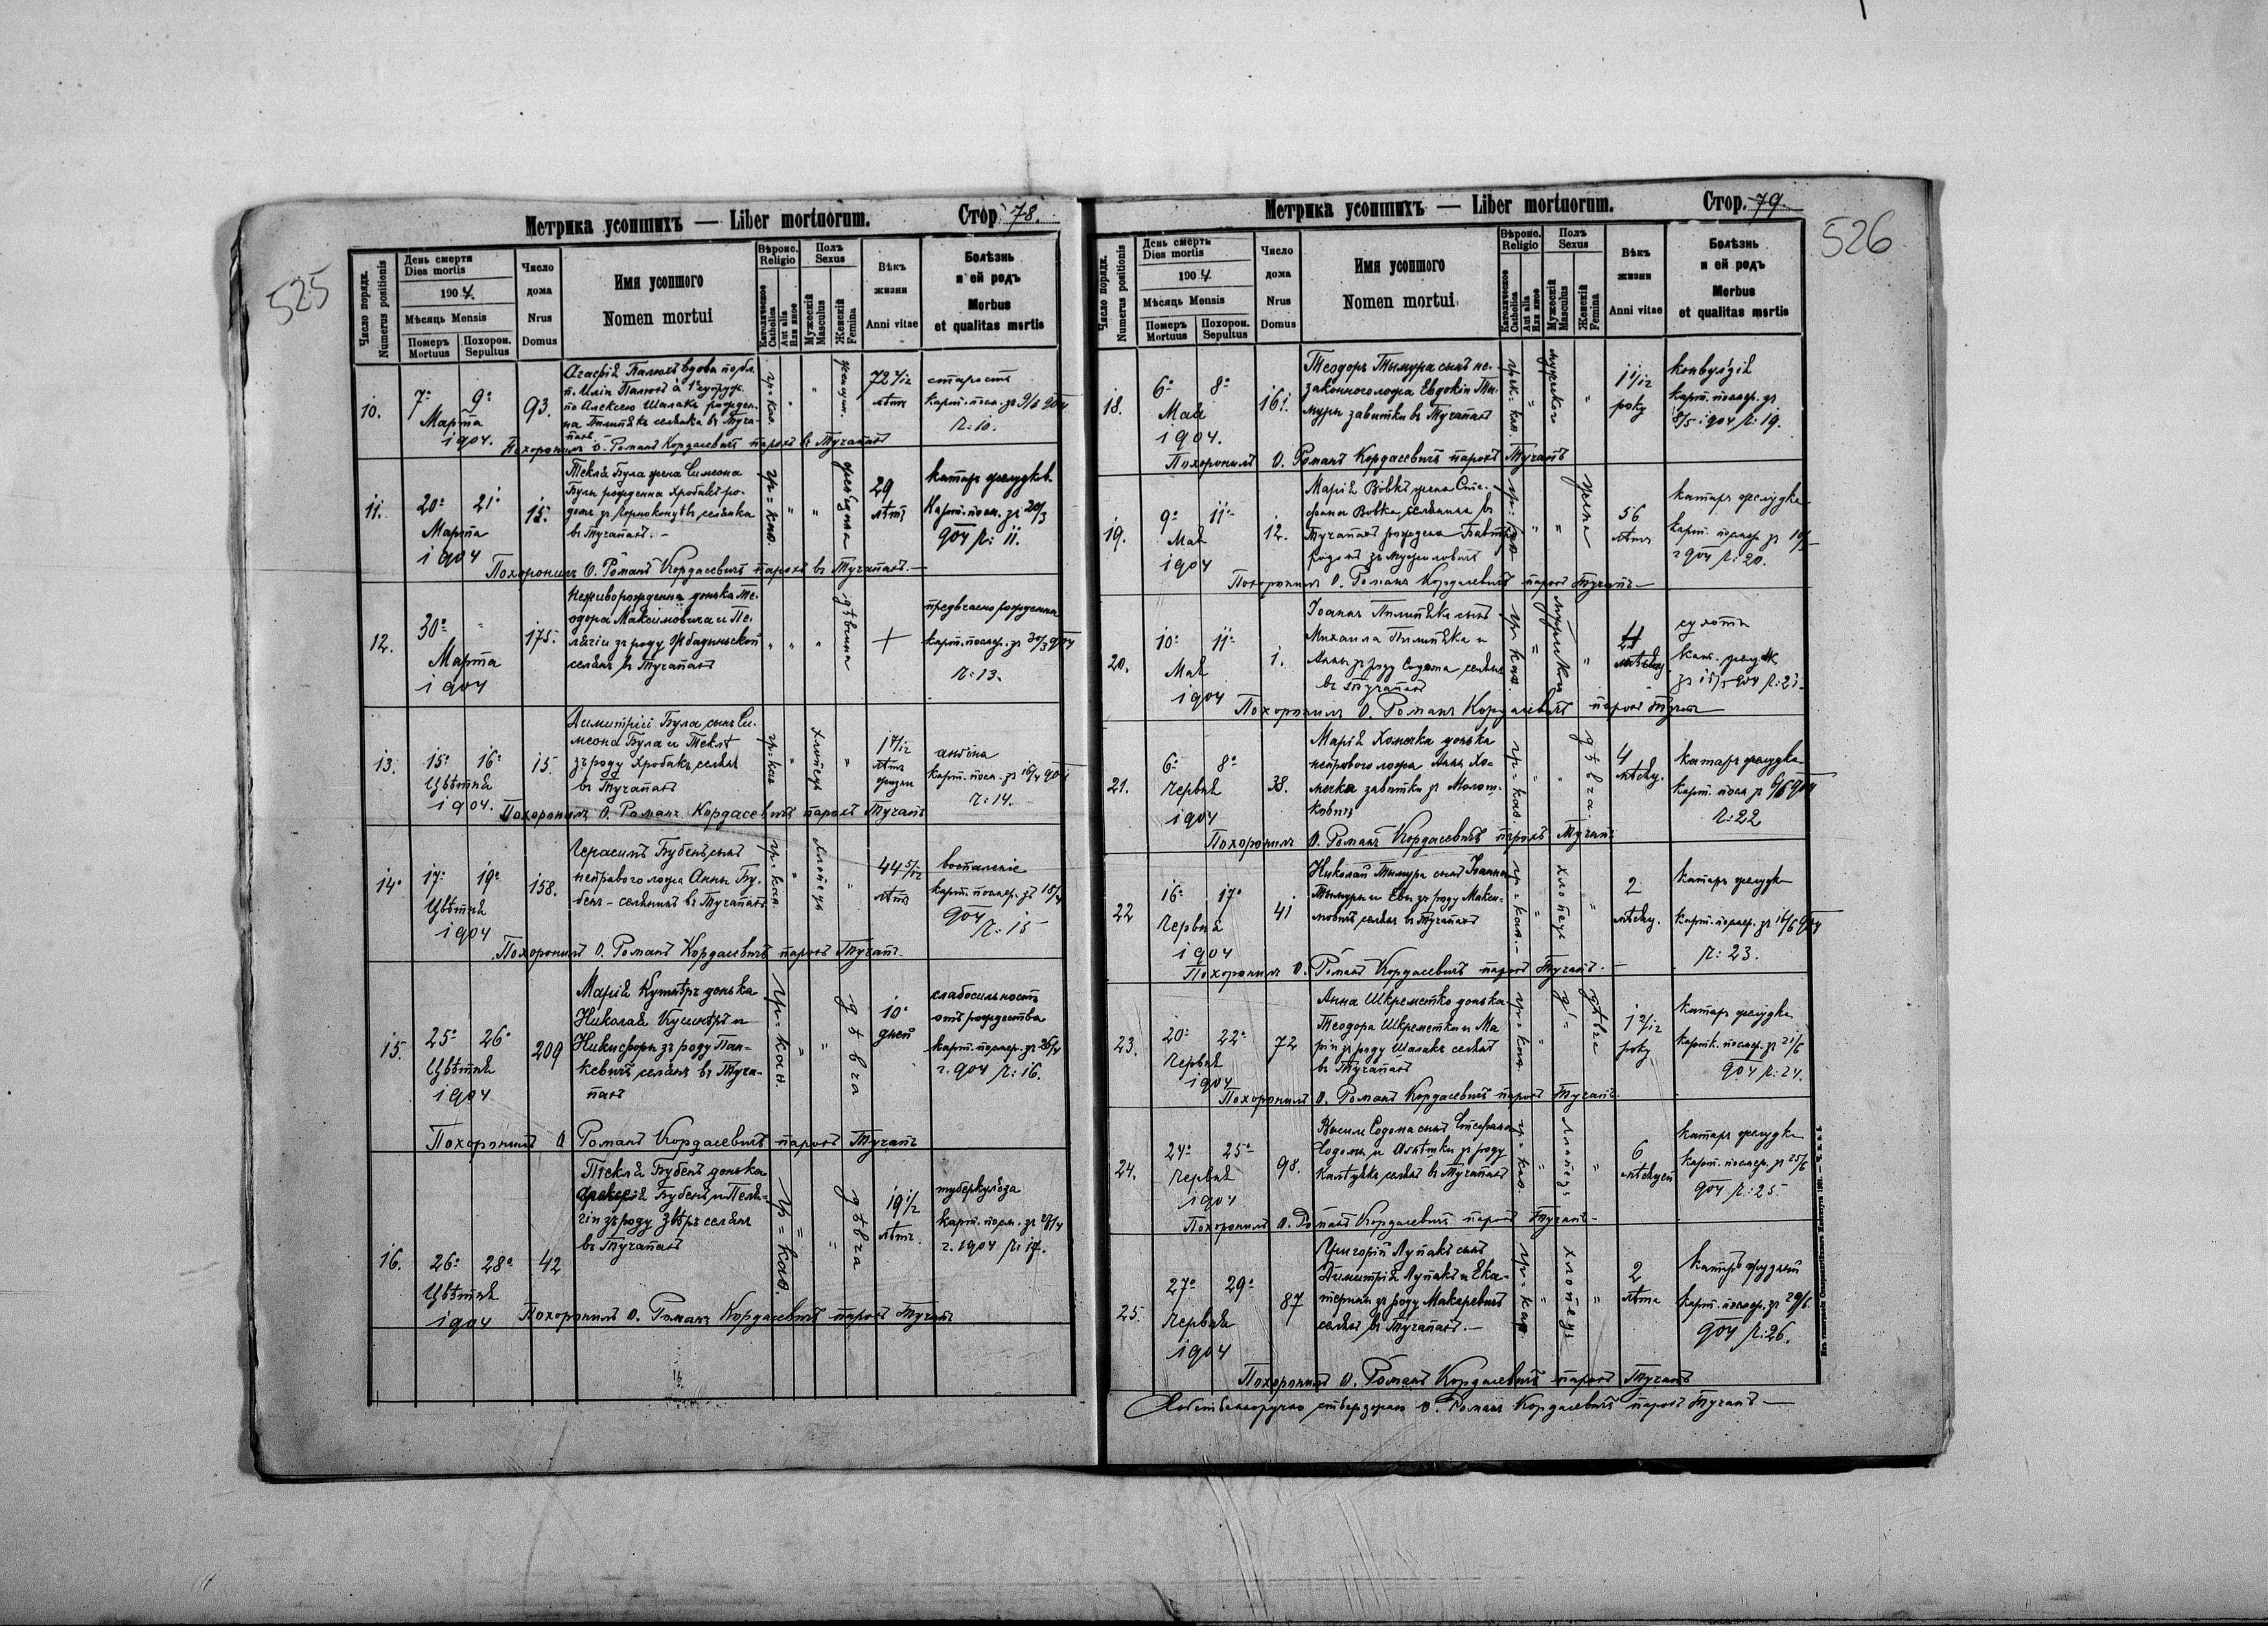 525
Метрика усопшихъ — Liber mortuorum.
Стор. 78.
Число порядк. Numerus positionis
День смерти Dies mortis
1904.
Мѣсяць Mensis
Померъ Mortuus
Похорон. Sepultus
Число дома Nrus Domus
Имя усопшого Nomen mortui
Вѣроис. Religio
Католическое Catholica
Или иное Aut alia
Полъ Sexus
Мужескій Masculus
Женскій Femina
Вѣкъ жизни Anni vitae
Болѣзнь и ей родъ Morbus et qualitas mortis
10.
7° 9°
Марта
1904.
93.
вдова по бл.
п. Иліи
по Алексею Шалакъ рожден-
на Пилипѣкъ селянка въ Туча-
пахъ. –
гр. кат.
72 4/12
лѣтъ
старость
карт. посм. зъ 9/3 904
Ч: 10.
Похоронилъ О. Романъ Кордасевичъ парохъ въ Тучапахъ
11.
20° 21°
Марта
1904
15.
Текля Була жена Симеона
Булы рожденна Хробакъ ро-
домъ зъ селянка
въ Тучапахъ. –
гр = кат.
29
лѣтъ
катаръ желудков.
Карт. посм. зъ 20/3
904 Ч: 11.
Похоронилъ О. Романъ Кордасевичъ парохъ въ Тучапахъ. –
12.
30° "
Марта
1904
175.
Неживорожденна донька Те-
одора Максимовича и Пе-
лягіи зъ роду
селянъ въ Тучапахъ
дѣвчина
предвчасно рожденна
карт. посмер. зъ 30/3 904
Ч: 13.
13.
15° 16°
Цвѣтня
1904.
15.
Димитрій Була сынъ Си-
меона Була и Теклѣ
зъ роду Хробакъ селянъ
въ Тучапахъ
гр. кат
хлопець
1 7/12
лѣтъ
жизни
ангіна
карт. посм. зъ 16/4 904
Ч: 14.
Похоронилъ О. Романъ Кордасевичъ парохъ Тучапъ
14.
17° 19°
Цвѣтня
1904
158.
Герасимъ Бубенъ сынъ
неправого ложа Анны Бу-
бенъ – селянинъ въ Тучапахъ
гр. кат.
хлопець
44 5/12
лѣтъ
воспаленіе
карт. посмер. зъ 18/4
904 Ч: 15
Похоронилъ О. Романъ Кордасевичъ парохъ Тучапъ.
15.
25° 26°
Цвѣтня
1904
209
Марія Кушнѣръ донька
Николая Кушнѣръ и
Никифоры зъ роду Пань-
кевичъ селянъ въ Туча-
пахъ
гр = кат.
дѣвча
10
дней
слабосильность
отъ рождества
карт. посмер. зъ 26/4
г. 904 Ч: 16.
Похоронилъ О Романъ Кордасевичъ парохъ Тучапъ
16.
26° 28°
Цвѣтня
1904
42
Текля Бубенъ донька
Бубенъ и Пеля-
гіи зъ роду Звѣръ селянъ
въ Тучапахъ
гр = кат.
дѣвча
19 1/2
лѣтъ.
туберкулеза
карт. посм. зъ 28/4
г. 1904 Ч: 17.
Похоронилъ О. Романъ Кордасевичъ парохъ Тучапъ
Метрика усопшихъ — Liber mortuorum.
Стор. 79.
526
Число порядк. Numerus positionis
День смерть Dies mortis
1904.
Мѣсяць Mensis
Померъ Mortuus
Похорон. Sepultus
Число дома Nrus Domus
Имя усопшого Nomen mortui
Вѣроис. Religio
Католическое Catholica
Или иное Aut alia
Полъ Sexus
Мужескій Masculus
Женскій Femina
Вѣкъ жизни Anni vitae
Болѣзнь и ей родъ Morbus et qualitas mortis
18.
6° 8°
Мая
1904.
161.
Теодоръ Тымура сынъ не-
законного ложа Евдокіи Ти-
муры завитки въ Тучапахъ
гр. к = кат.
мужеского
1 1/12
року
конвулзія
карт. посмер. зъ
8/5 1904 Ч: 19.
Похоронилъ О. Романъ Кордасевичъ парохъ Тучапъ
19.
9° 11°
Мая
1904
12.
Марія Вовкъ жена Сте-
фана Вовка, селянина въ
Тучапахъ рождена
родомъ зъ
жена
56
лѣтъ
катаръ желудка
карт. посмер. зъ 10/5
г 904 Ч: 20.
Похоронилъ О. Романъ Кордасевичъ парохъ Тучапъ –
20.
10° 11°
Мая
1904
1.
Іоаннъ Пилипѣкъ сынъ
Михаила Пилипѣка и
Анны зъ роду Содома селянъ
въ Тучапахъ
гр. кат.
4
мѣсяцы
сухоты
Похоронилъ О. Романъ Кордасевичъ парохъ Тучапъ
21.
6° 8°
Червня
1904
38.
Марія Хомечка донька
неправого ложа Анны Хо-
мечка завитки зъ
гр = кат.
дѣвча
4
мѣсяц.
катаръ желудка
карт. посм зъ 6/6 904
Ч: 22
Похоронилъ О. Романъ Кордасевичъ парохъ Тучапъ
22
16° 17°
Червня
1904
41
Николай Тымура сынъ Іоанна
Тымуры и Евы зъ роду Макси-
мовичъ селянъ въ Тучапахъ
гр = кат. –
хлопець
2
мѣсяц.
катаръ желудка
карт. посмер. зъ 16/6 904
Ч: 23.
Похоронилъ О. Романъ Кордасевичъ парохъ Тучапъ. –
23.
20° 22°
Червня
1904
72
Анна Шкреметко донька
Теодора Шкреметки и Ма
ріи зъ роду Шалакъ селянъ
въ Тучапахъ
гр = кат
дѣвча
1 2/12
року
катаръ желудка
карт. посмер. зъ 21/6
904 Ч: 24.
Похоронилъ О. Романъ Кордасевичъ парохъ Тучапъ.
24.
24° 25°
Червня
1904
98.
Василь Содома сынъ Стефана
Содомы и зъ роду
селянъ въ Тучапахъ
гр = кат.
хлопець
6
мѣсяцей
катаръ желудка
карт. посмер. зъ 25/6
904 Ч: 25.
Похоронилъ О. Романъ Кордасевичъ парохъ Тучапъ –
25.
27° 29°
Червня
1904
87
Григорій Лупакъ сынъ
Димитрія Лупакъ и Ека-
терины зъ роду Макаревичъ
селянъ въ Тучапахъ. –
гр = кат.
хлопець
2
лѣта
катаръ
карт. посмер. зъ 29/6.
904 Ч: 26.
Похоронилъ О. Романъ Кордасевичъ парохъ Тучапъ
Собственноручно ствержаю О. Романъ Кордасевичъ парохъ Тучапъ —